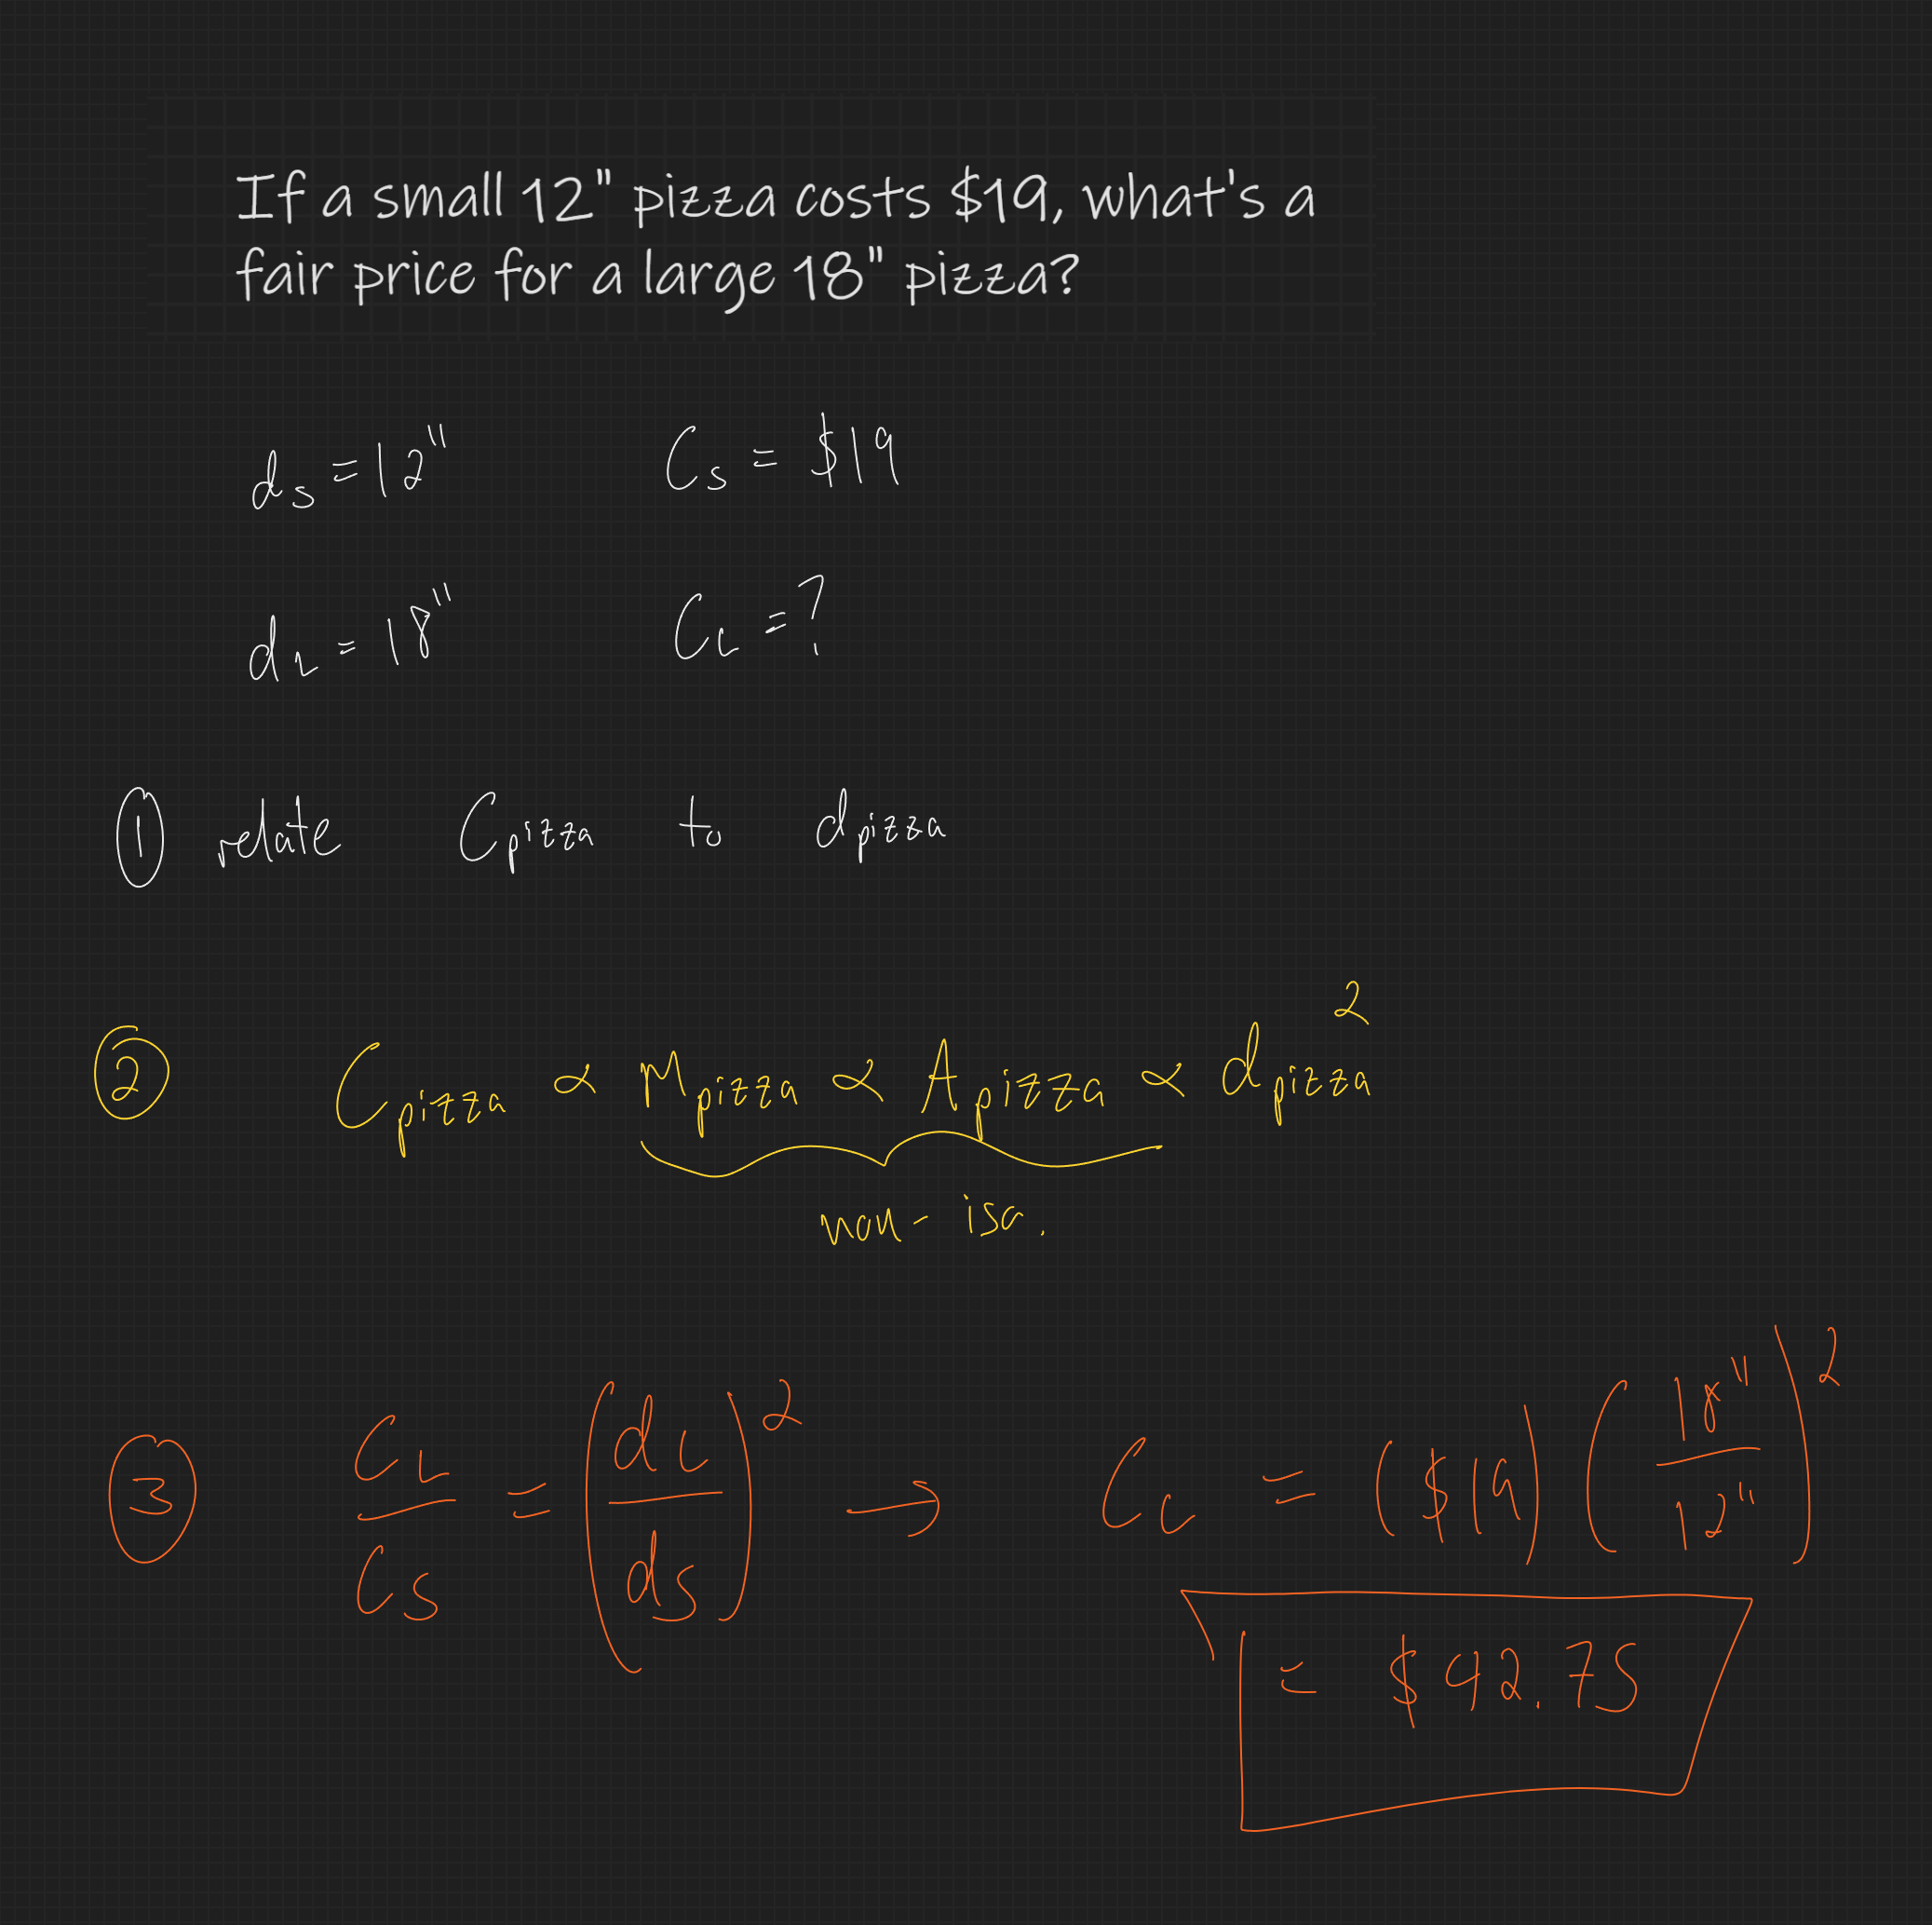 If a small 12" pizza costs $19, what's a
fair price for a large 18" pizza?
d_s = 12" C_s = $19
d_L = 18" C_L = ?
① relate C_pizza to d_pizza
② C_pizza ∝ M_pizza ∝ A_pizza ∝ d_pizza²
non-iso.
③ C_L/C_s = (d_L/d_s)² → C_L = ($19) (18"/12")²
= $42.75